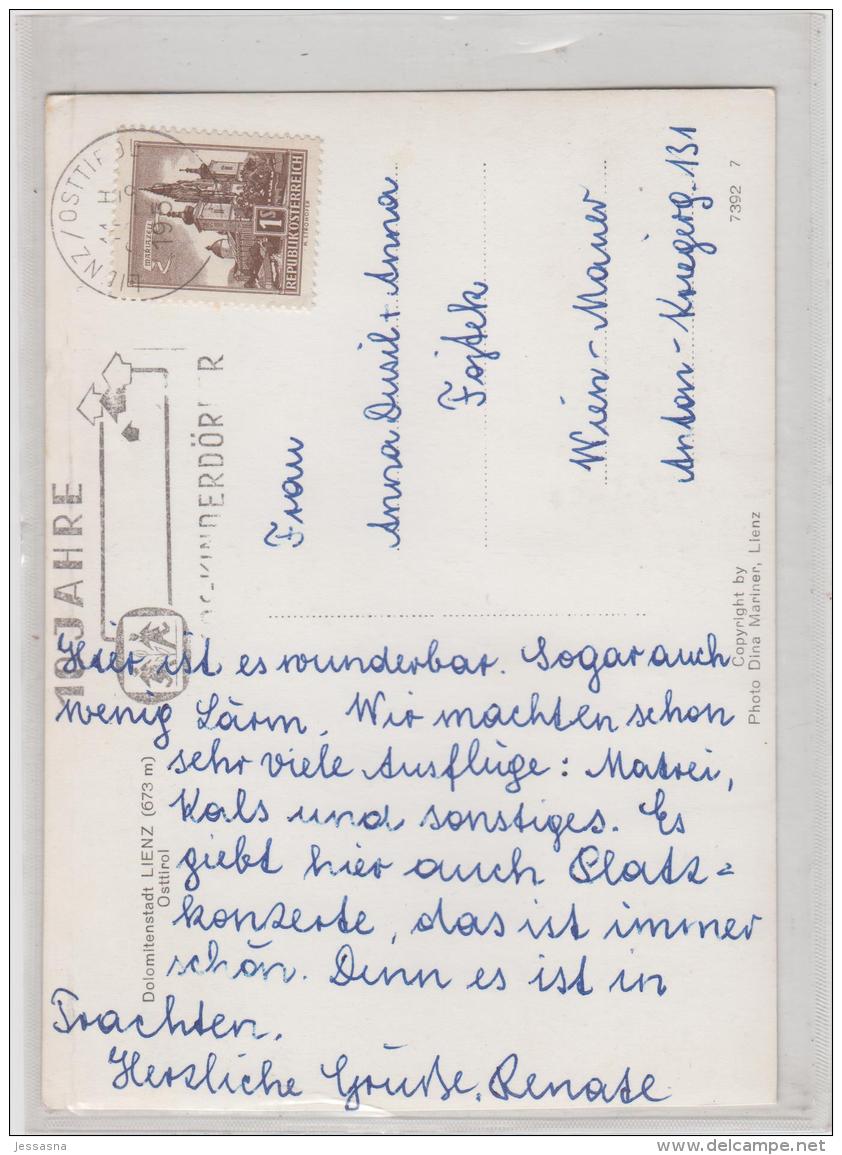 LIENZ/OSTTIROL
MARIAZELL
1S
REPUBLIK ÖSTERREICH
10 JAHRE
KINDERDÖRFER
Frau
Anna Dusil + Anna
Fojtek
Wien-Mauer
Anton-Kriegerg. 131
7392 7
Copyright by
Photo Dina Mariner, Lienz
Dolomitenstadt LIENZ (673 m)
Osttirol
Hier ist es wunderbar. Sogar auch
wenig Lärm. Wir machten schon
sehr viele Ausflüge: Matrei,
Kals und sonstiges. Es
giebt hier auch Platz=
konzerte, das ist immer
schön. Denn es ist in
Trachten.
Herzliche Grüße, Renate
jessasna
www.delcampe.net